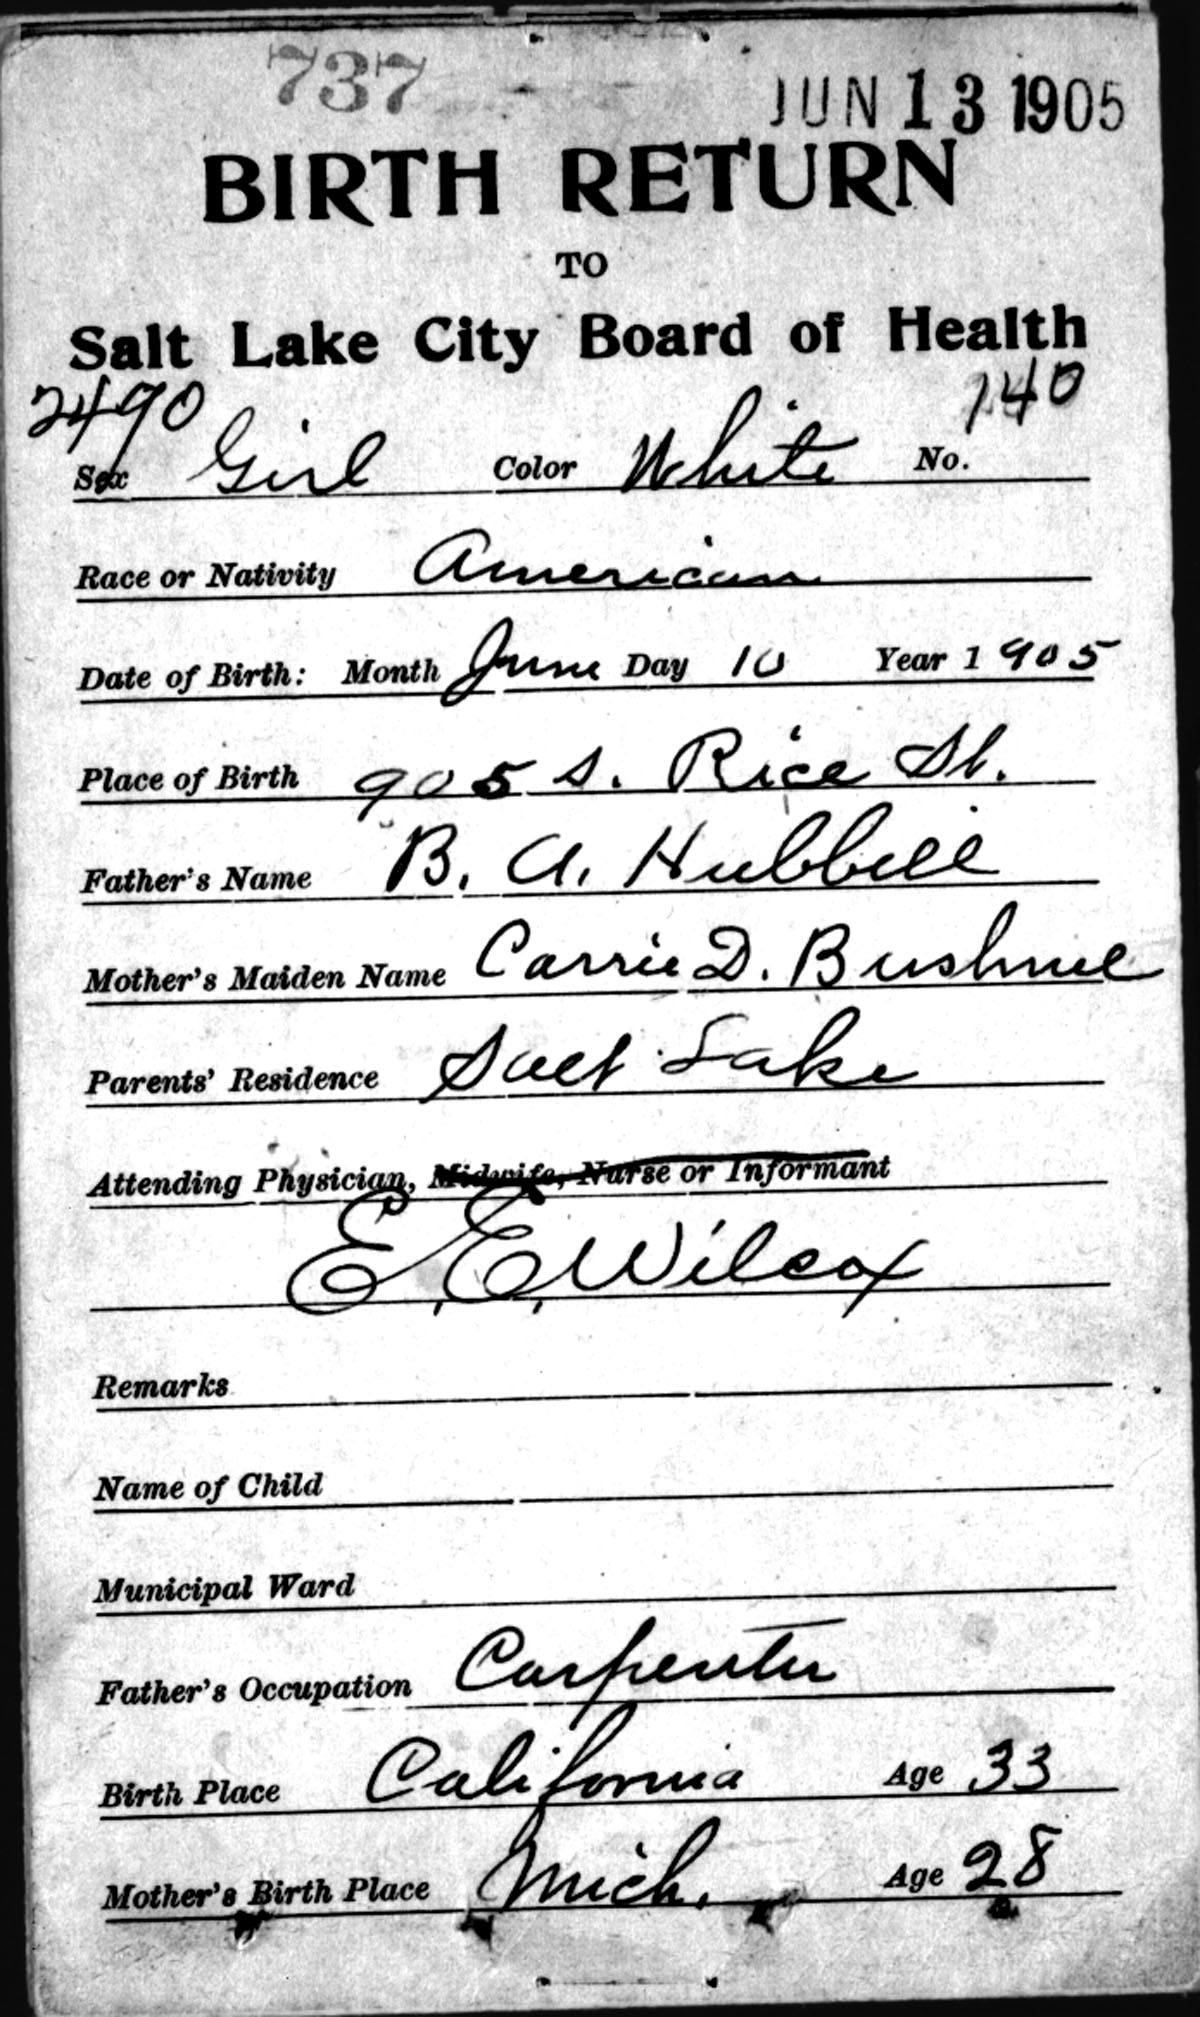 737
JUN 13 1905
BIRTH RETURN
TO
Salt Lake City Board of Health
2490 140
Sex Girl Color White No.
Race or Nativity American
Date of Birth: Month June Day 10 Year 1 905
Place of Birth 905 S. Rice St.
Father's Name B. A. Hubbell
Mother's Maiden Name Carrie D. Bushnel
Parents' Residence Salt Lake
Attending Physician, Midwife, Nurse or Informant
E. E. Wilcox
Remarks
Name of Child
Municipal Ward
Father's Occupation Carpenter
Birth Place California Age 33
Mother's Birth Place Mich. Age 28